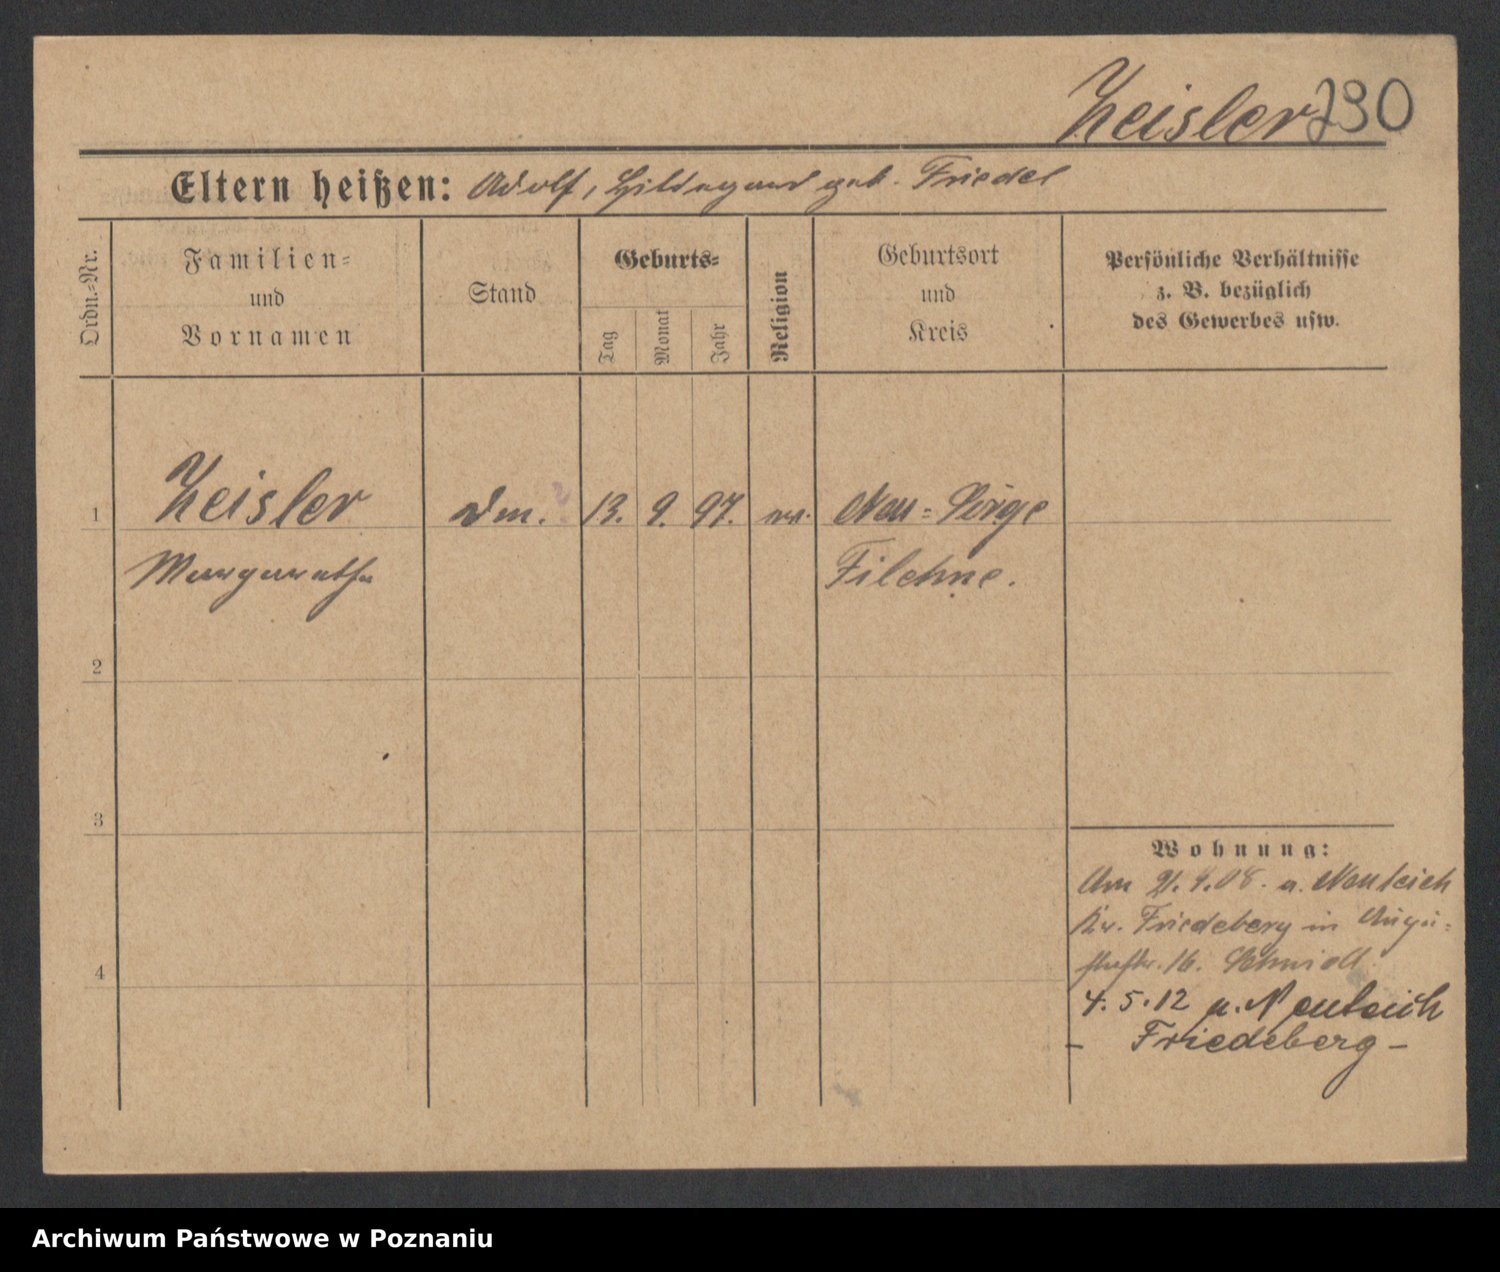 Zeisler 290
Eltern heißen: Adolf, Hildegard geb. Friedel
Ordn.-Nr.
Familien-
und
Vornamen
Stand
Geburts-
Tag
Monat
Jahr
Religion
Geburtsort
und
Kreis
Persönliche Verhältnisse
z. B. bezüglich
des Gewerbes usw.
1 Zeisler 13. 9. 97. Neu-Sorge
Margarethe Filehne.
2
3
4
Wohnung:
Am 21.4.08. a. Neuteich
Kr. Friedeberg in Augu-
stastr. 16. Schmidt.
4.5.12 n. Neuteich
- Friedeberg -
Archiwum Państwowe w Poznaniu